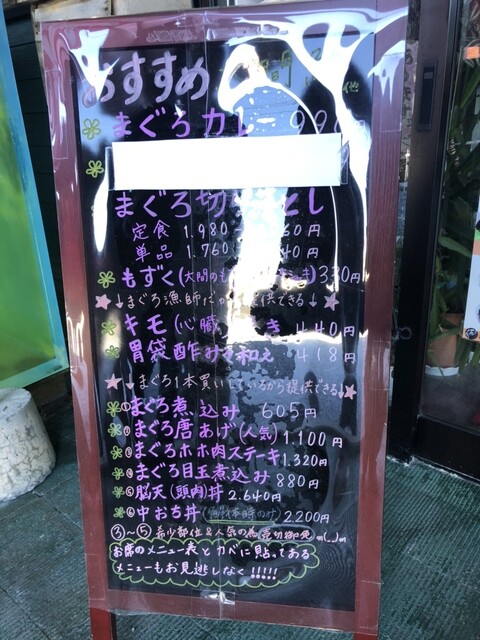 おすすめ
他
まぐろカレ 99
まぐろ切 とし
定食 1.980 60円
単品 1.760 40円
もずく(大間のも き)330円
★↓まぐろ漁師だか 提供できる↓★
キモ(心臓 き 440円
胃袋酢みそ和え 418円
★↓まぐろ1本買いしているから提供できる↓★
①まぐろ煮込み 605円
②まぐろ唐あげ(人気)1.100円
③まぐろホホ肉ステーキ1.320円
④まぐろ目玉煮込み 880円
⑤脳天(頭肉)丼 2.640円
⑥中おち丼 2.200円
③〜⑤希少部位&人気の為売切御免m(_)m
お席のメニュー表とカベに貼ってある
メニューもお見逃しなく!!!!!